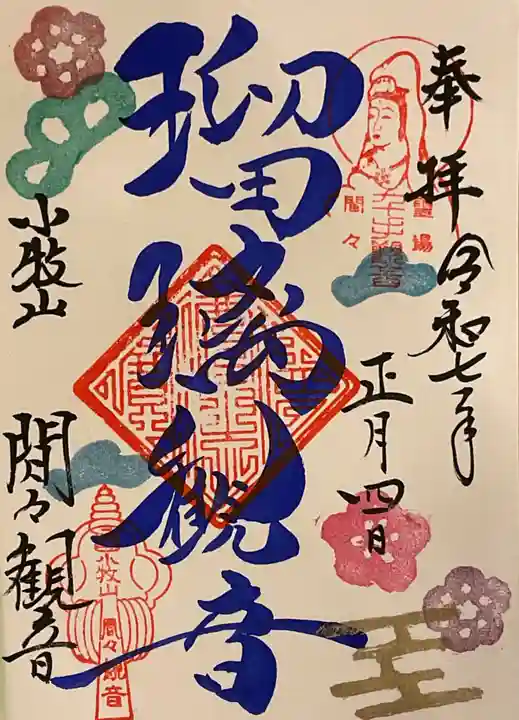 奉拝
令和七年
正月四日
瑠璃観音
小牧山
間々観音
霊場
間々
小牧山
間々観音